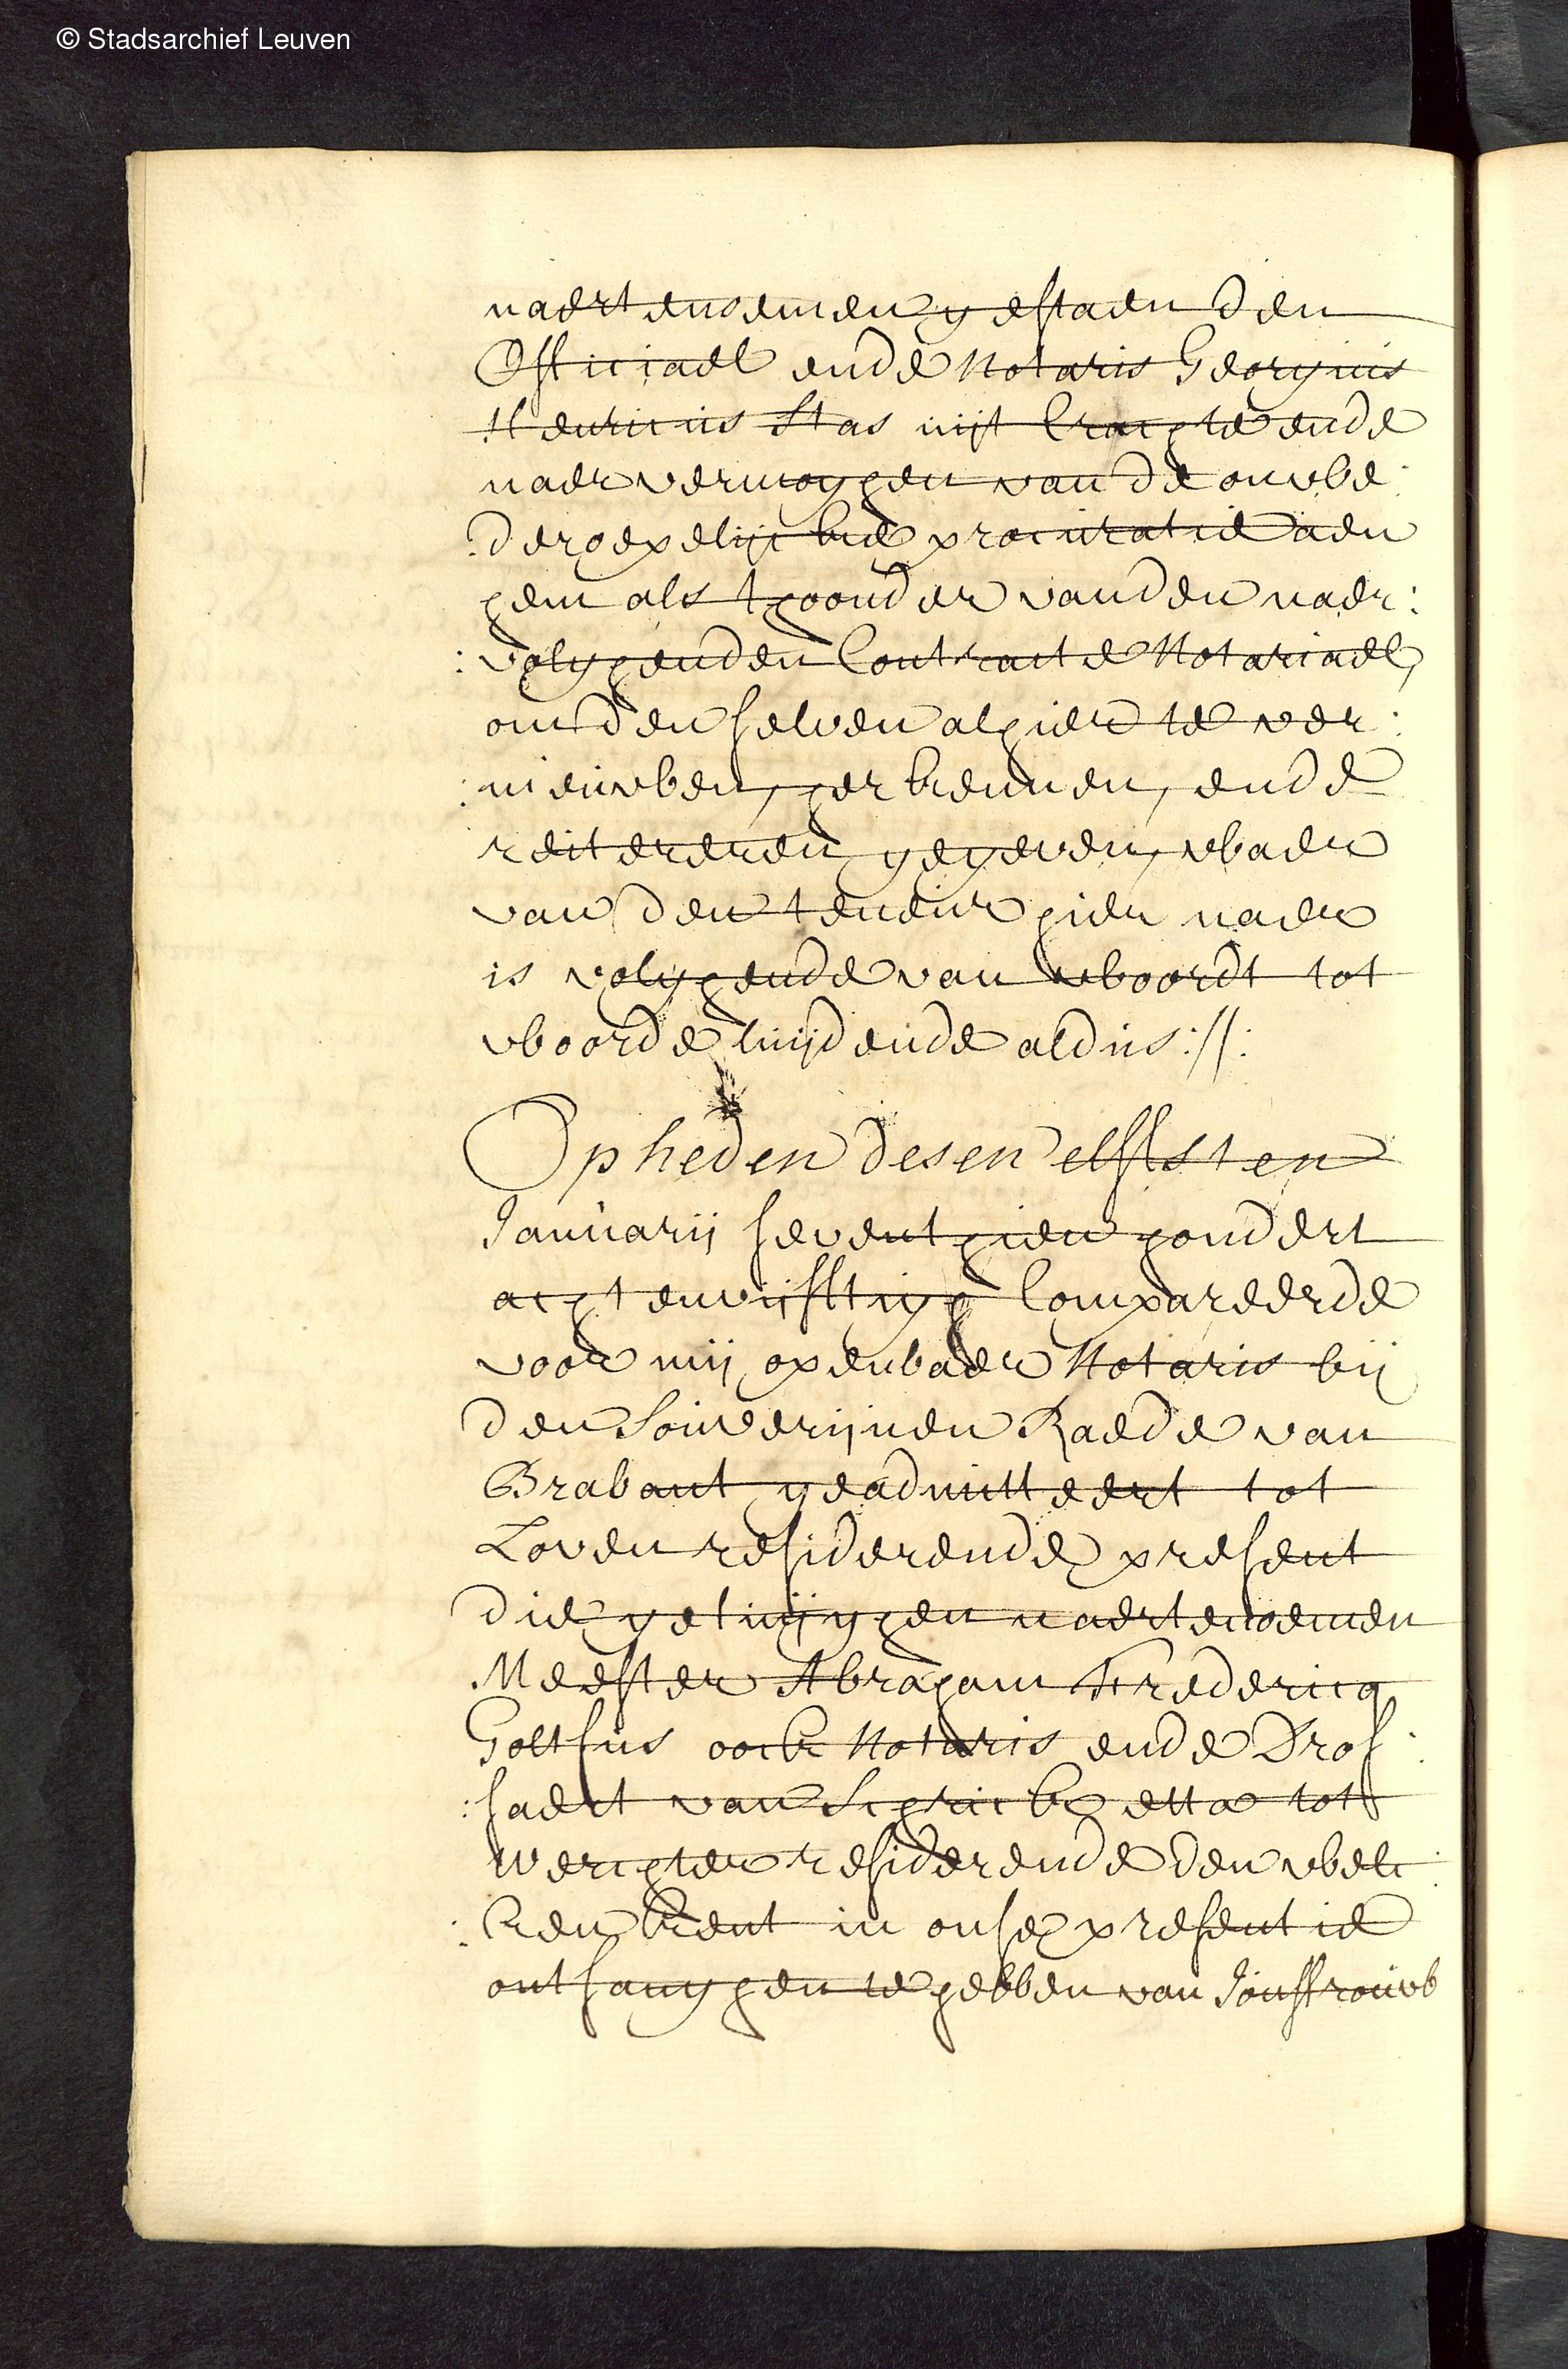 © Stadsarchief Leuven
naertenoemen gestaen den
Officiael ende Notaris Georgius
Henricus Stas uijt Craghte ende
naer vermoghen van de onwbe:
:deroepelijcke procuratie aen
hem als thoonder van den naer:
:volghenden Contracte Notariael,
om den selven alhier te ver:
:nieuwben, herkennen, ende
reitereren gegeven, wbaer
van den teneur hier naer
is volghende van wboordt tot
wboorde luijdende aldus ://:
Op heden desen elfsten
Januarij seventhien hondert
achtenvijftigh Compareerde
voor mij openbaer Notaris bij
den Souverijnen Raede van
Brabant geadmitteert tot
Loven residerende present
die getuijghen naertenoemen
Meester Abraham Fredericq
Goltfus oock Notaris ende Dros:
:saert van Schrieck etta tot
Werchter residerende den wbelc:
:ken kent in onse presentie
ontfanghen te hebben van Jouffrouwb